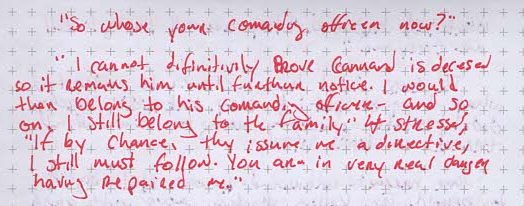 "So whose your comanding officer now?"
"I cannot definitively prove Cannard is decesed
so it remains him until further notice. I would
then belong to his comanding officer - and so
on, I still belong to the family." It stressed,
"If by chance, they issure me a directive,
I still must follow. You are in very real danger
having repaired me."